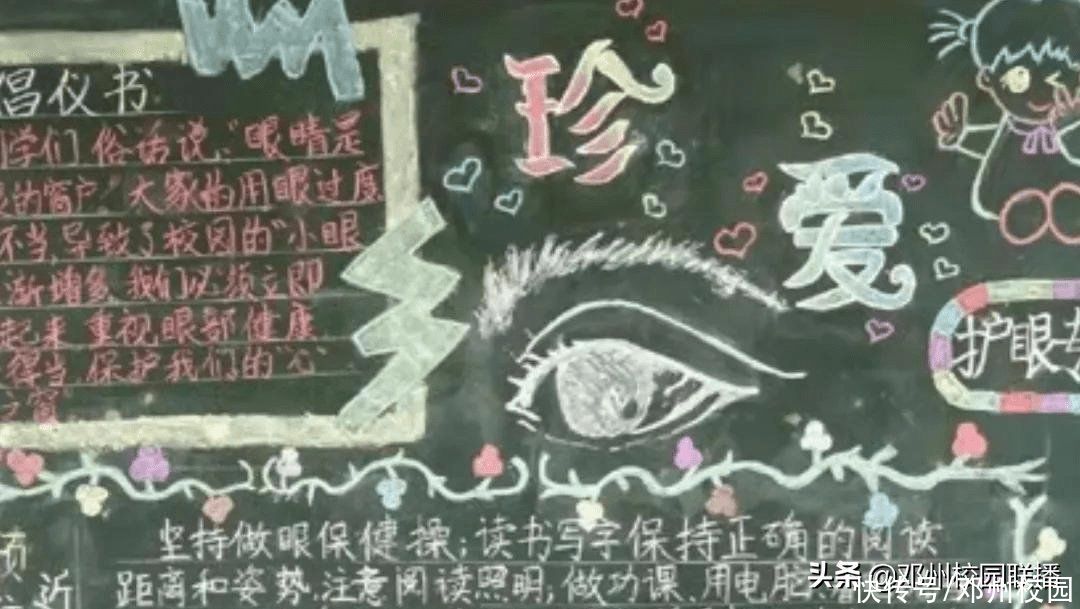 倡仪书
学们 俗话说,“眼睛是
的窗户”大家的用眼过度
不当,导致了校园的“小眼
渐增多,我们必须立即
起来 重视眼部健康
得当 保护我们的“心
之窗
珍
爱
护眼
坚持做眼保健操;读书写字保持正确的阅读
近 距离和姿势,注意阅读照明;做功课、用电脑
头条 @邓州校园联播
快传号/邓州校园